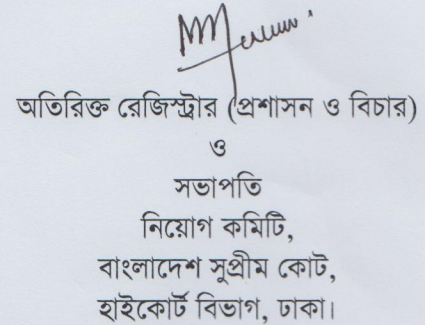 অতিরিক্ত রেজিস্ট্রার (প্রশাসন ও বিচার)
ও
সভাপতি
নিয়োগ কমিটি,
বাংলাদেশ সুপ্রীম কোর্ট,
হাইকোর্ট বিভাগ, ঢাকা।